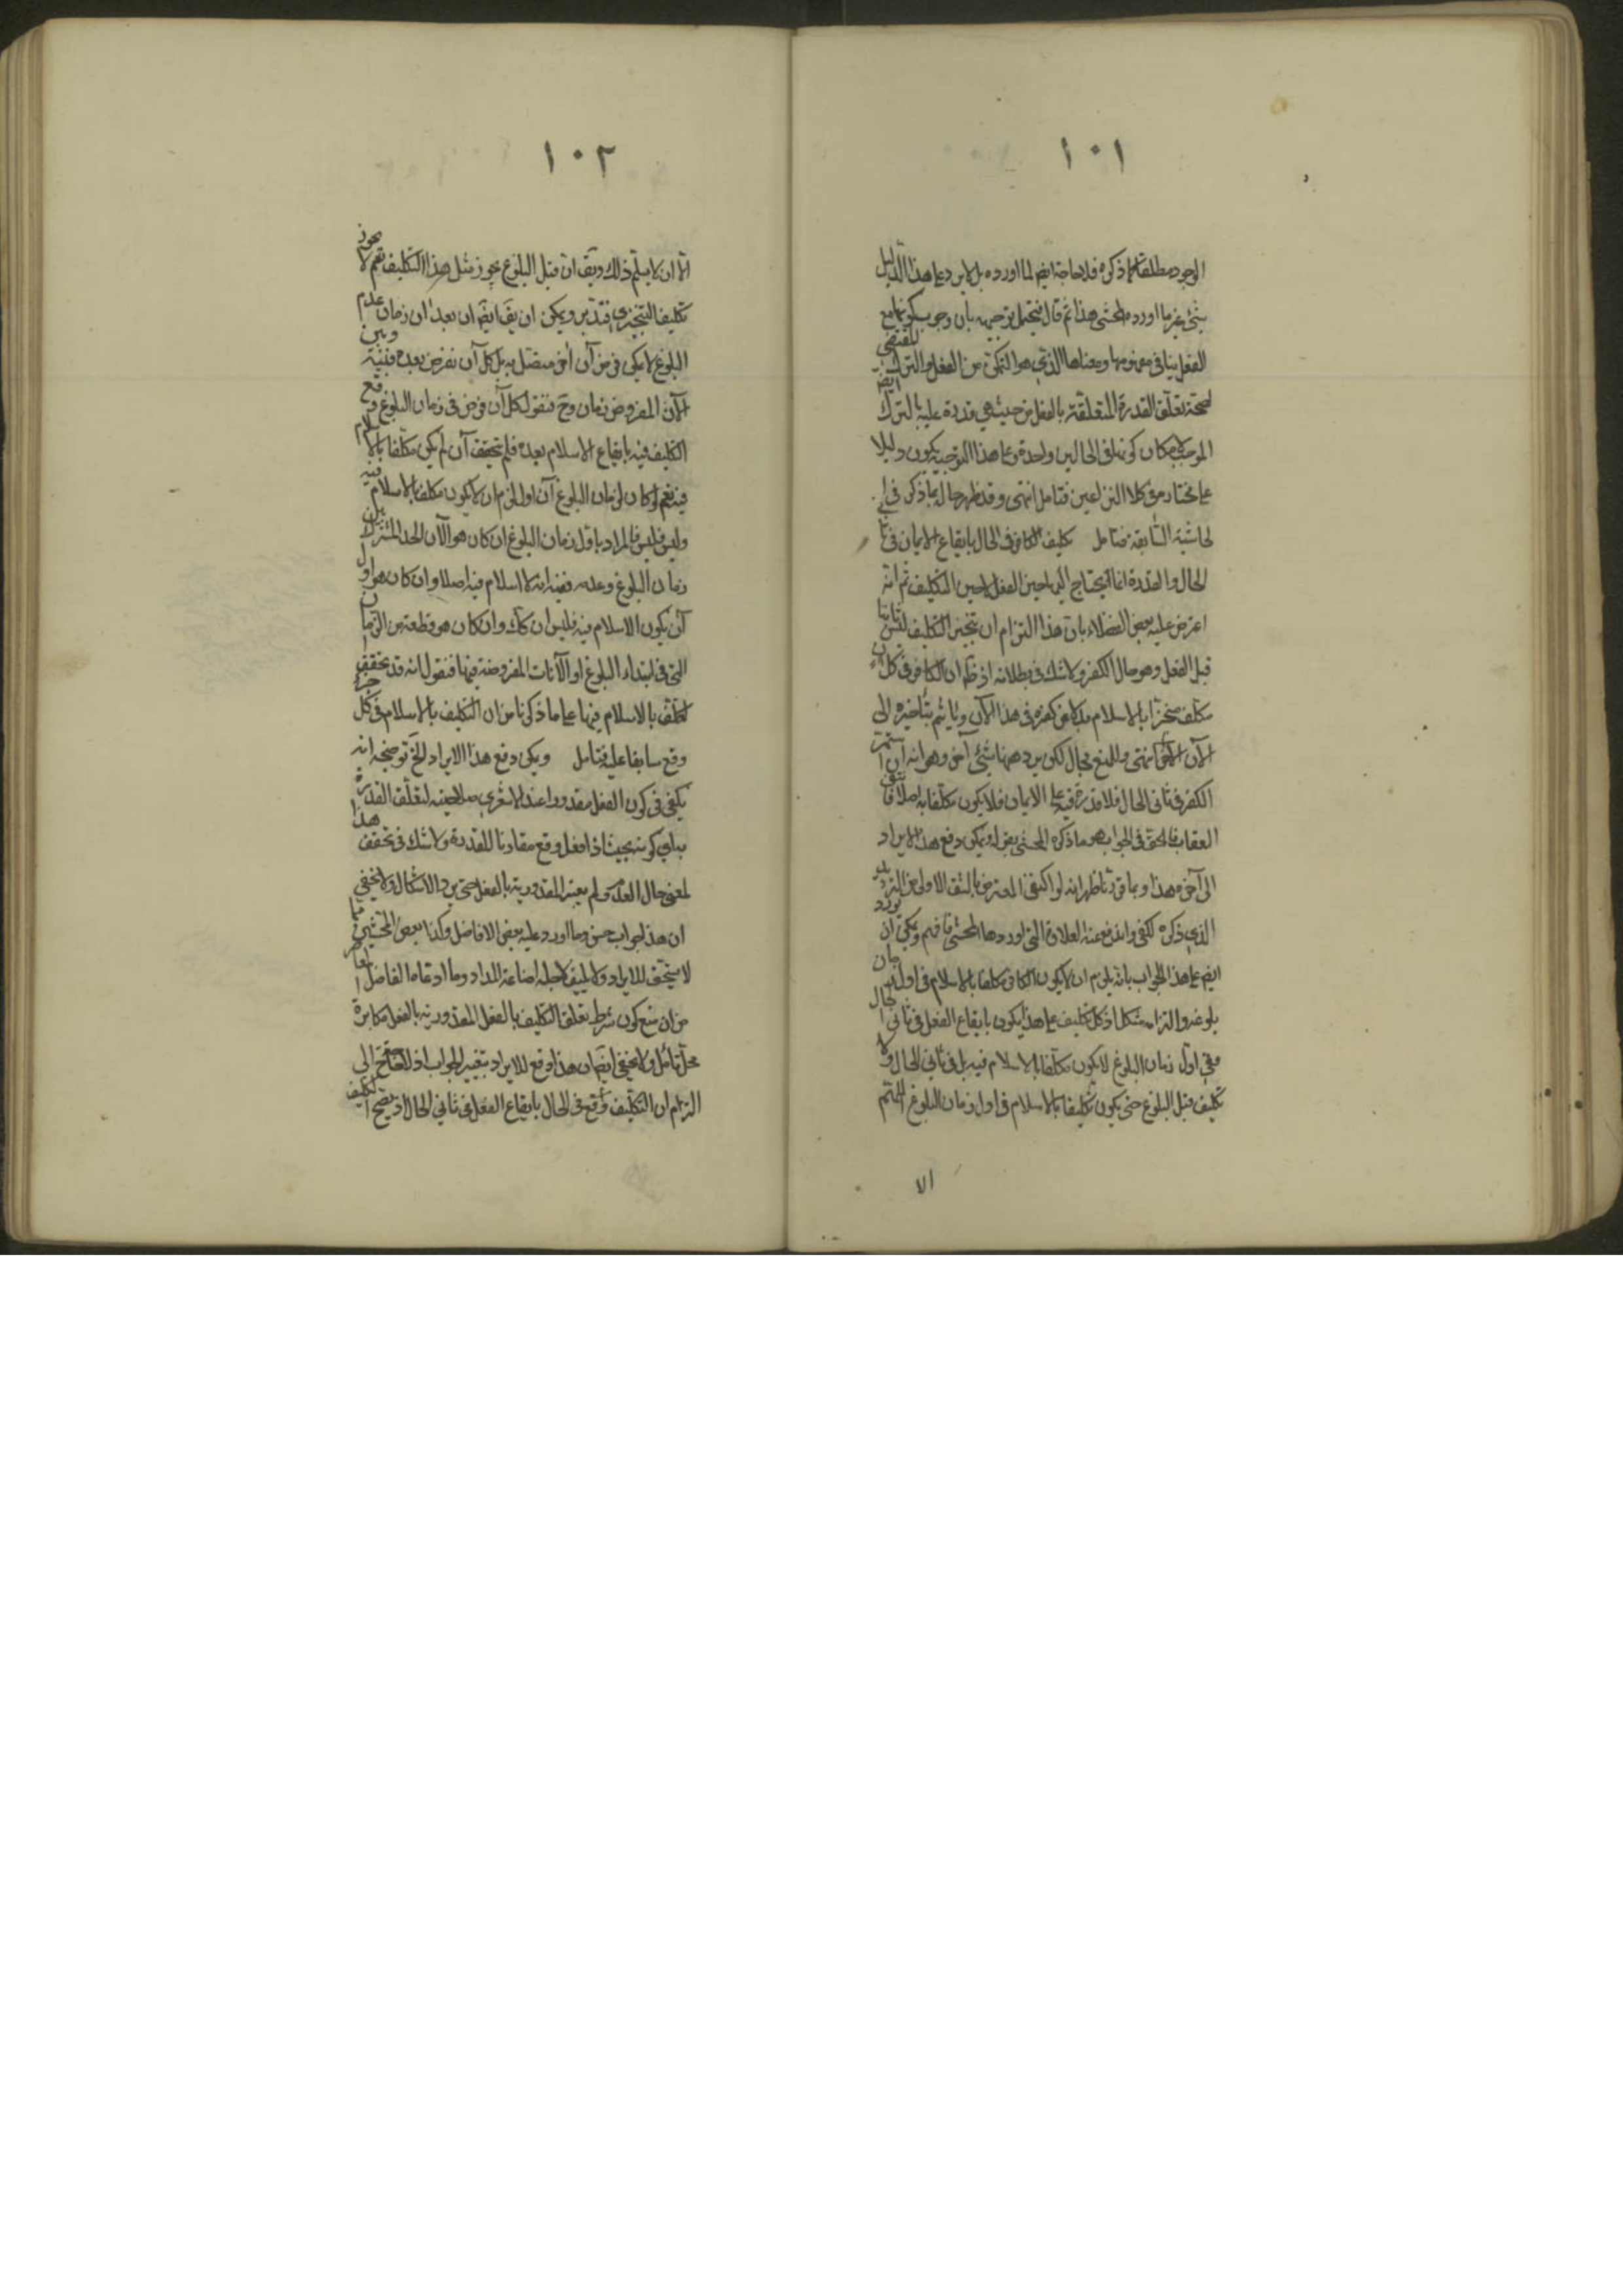 ١٠١
الوجود مطلقا كما ذكره فلا حاجة ايضا لما اورده بل لا يرد على هذا الدليل
شئ غير ما اورده المحشى هذا ثم قال فيحتمل توجيهه بان وجوب كونها مع
الفعل ينافى مفهومها ومعناها الذي هو التمكن من الفعل والترك
لصحة تعلق القدرة المتعلقة بالفعل من حيث هي قدرة عليه بالترك
كونها فى الحالين واحدة وعلى هذا التوجيه يكون دليلا
على مختاره فى كلا النزاعين فتامل انتهى وقد ظهر حاله بما ذكر فى
الحاشية السابقة فتامل تكليف الكافر فى الحال بايقاع الايمان فى ثانى
الحال والقدرة انما يحتاج اليها حين الفعل لا حين التكليف ثم انه
اعترض عليه بعض الفضلاء بان هذا التزام ان تنجيز التكليف
قبل الفعل وهو حال الكفر ولا شك فى بطلانه اذ ظ ان الكافر فى كل آن
مكلف منجزا بالاسلام معاقب كفره فى هذا الآن ويأثم بتأخيره الى
الآن انتهى وللمنع مجال لكن يرد ههنا شئ آخر وهو انه ان استمر
الكفر فى ثانى الحال فلا قدرة فيه على الايمان فلا يكون مكلفا به اصلا
العقاب فالحق فى الجواب هو ما ذكره المحشى بقوله ويمكن دفع هذا الايراد
الى آخره هذا وبما قررنا ظهر انه لو اكتفى المعترض بالشق الاول من الترديد
الذي ذكره لكفى واندفع عنه العلاوة التى اوردها المحشى فافهم ويمكن ان يورد
ايضا على هذا الجواب بانه يلزم ان لا يكون الكافر مكلفا بالاسلام فى اول زمان
بلوغه والتزامه مشكل اذ كل تكليف على هذا يكون بايقاع الفعل فى ثانى الحال
ففى اول زمان البلوغ لا يكون مكلفا بالاسلام فيه بل فى ثانى الحال ولا
تكليف قبل البلوغ حتى يكون تكليفا بالاسلام فى اول زمان البلوغ اللهم
الا
١٠٢
الا ان لا يسلم ذلك ويق ان قبل البلوغ يجوز مثل هذا التكليف نعم لا يجوز
تكليفا التنجيزى فتدبر ويمكن ان يق ايضا ان بعد ان زمان عدم
البلوغ لا يمكن فرض آن آخر متصل به بل كل آن نفرض بعده فبينه وبين
الآن المفروض زمان وح فنقول كل آن فرض فى زمان البلوغ وقع
التكليف فيه بايقاع الاسلام بعده فلم يتحقق آن لم يكن مكلفا بالاسلام
فيه نعم لو كان لزمان البلوغ آن اول لزم ان لا يكون مكلفا بالاسلام فيه
وليس فليس فالمراد باول زمان البلوغ ان كان هو الآن الحد المشترك بين
زمان البلوغ وعدمه ففيه انه لا اسلام فيه اصلا وان كان هو اول
آن يكون الاسلام فيه فليس ان كك وان كان هو قطعة من الزمان
التى فى ابتداء البلوغ او الآنات المفروضة فيها فنقول انه قد تحقق
التكليف بالاسلام فيها على ما ذكرنا من ان التكليف بالاسلام فى كل جزء
وقع سابقا عليه فتامل ويمكن دفع هذا الايراد الخ توضيحه انه
يكفى فى كون الفعل مقدورا عند الاشعري صلاحيته لتعلق القدرة
به اي كونه بحيث اذا فعل وقع مقارنا للقدرة ولا شك فى تحقق هذا
المعنى حال العدم ولم يعتبر المقدورية بالفعل حتى يرد الاشكال ولا يخفى
ان هذا الجواب حسن وما اورد عليه بعض الافاضل وكذا بعض المحشين مما
لا يستحق للايراد ولا يليق لاجله اضاعة المداد وما ادعاه الفاضل
من ان منع كون شرط تعلق التكليف بالفعل المقدورية بالفعل مكابرة
محل تامل ولا يخفى ايضا ان هذا دفع للايراد بتغيير الجواب اذ لا يحتاج ح الى
التزام ان التكليف وقع فى الحال بايقاع الفعل فى ثانى الحال اذ يصح التكليف